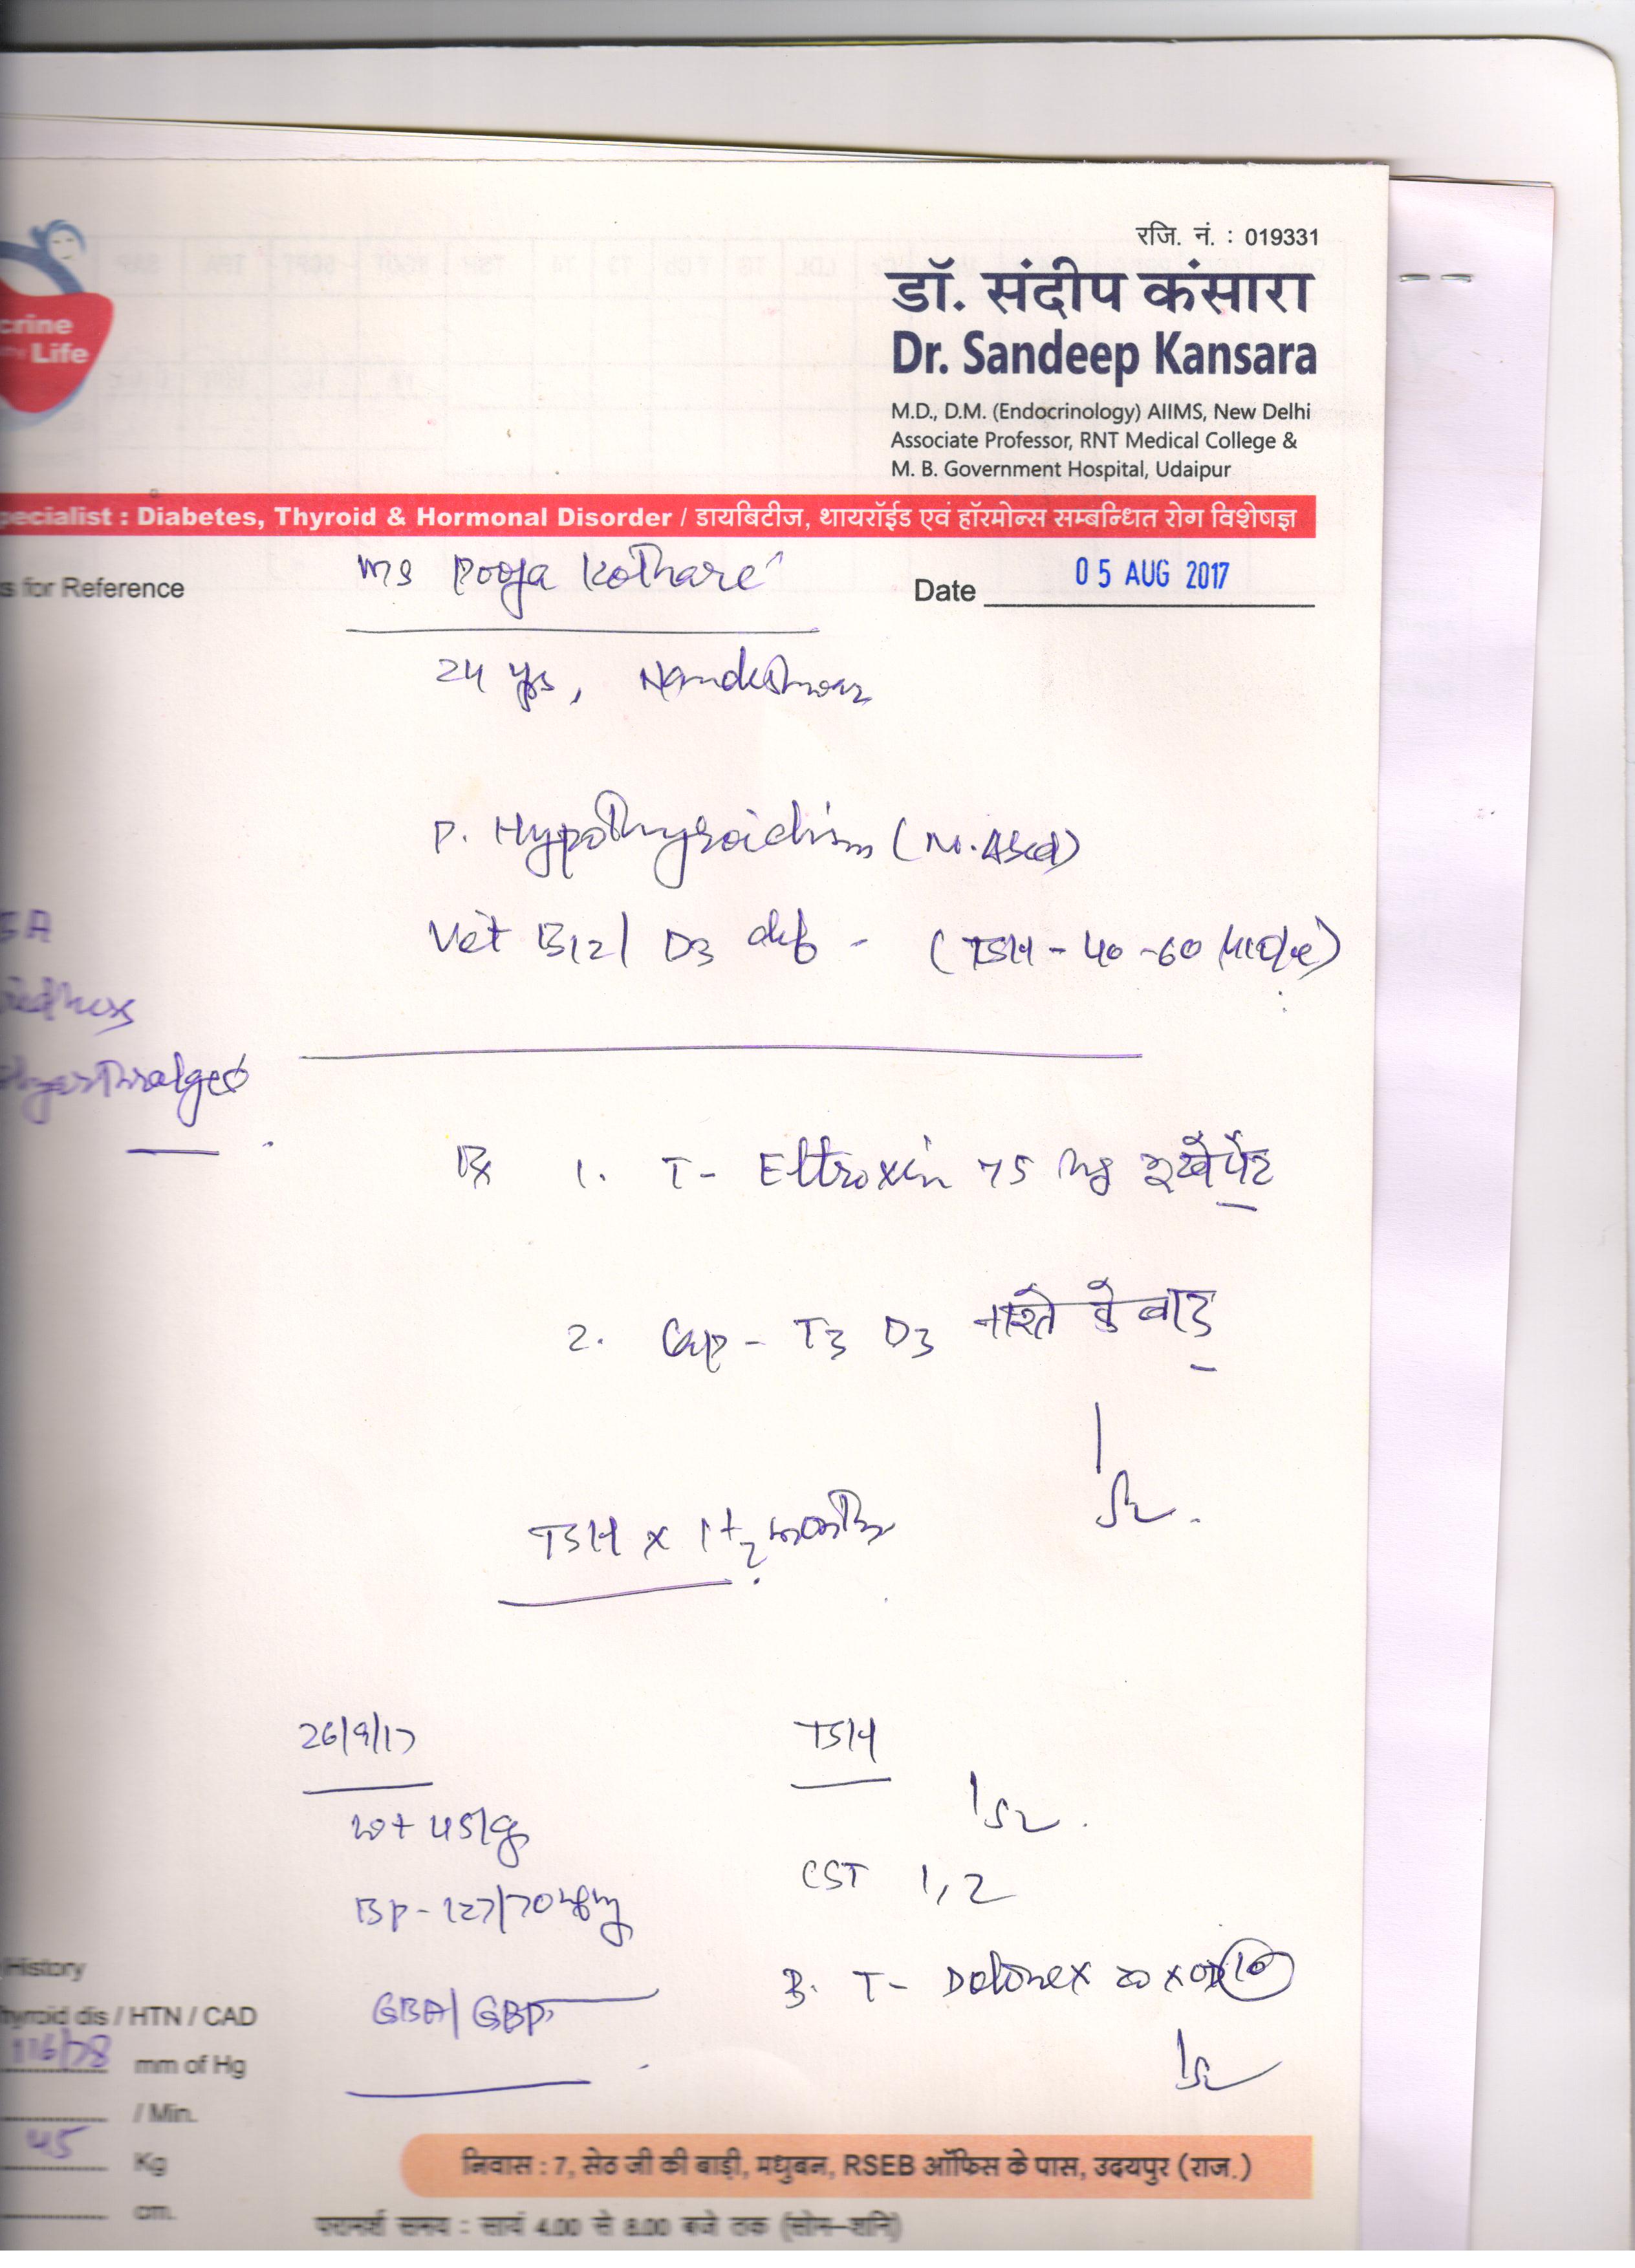 रजि. नं. : 019331
डॉ. संदीप कंसारा
Dr. Sandeep Kansara
crine
Life
M.D., D.M. (Endocrinology) AIIMS, New Delhi
Associate Professor, RNT Medical College &
M. B. Government Hospital, Udaipur
pecialist : Diabetes, Thyroid & Hormonal Disorder / डायबिटीज, थायरॉईड एवं हॉरमोन्स सम्बन्धित रोग विशेषज्ञ
s for Reference
Ms Pooja Kothari
Date 05 AUG 2017
24 yrs,
P. Hypothyroidism
Vit B12/ D3 def - (TSH - 40 -60
Rx 1. T- Eltroxin 75
2. Cap - T3 D3 नाश्ते के बाद
TSH x 1+2 months
26/9/17
TSH
wt 45kg
CST 1, 2
BP - 127/70
3. T- Dolonex 20 x 10
History
hyroid dis / HTN / CAD
116/78 mm of Hg
/ Min.
45 Kg
cm.
निवास : 7, सेठ जी की बाड़ी, मधुबन, RSEB ऑफिस के पास, उदयपुर (राज.)
परामर्श समय : सायं 4.00 से 8.00 बजे तक (सोम-शनि)